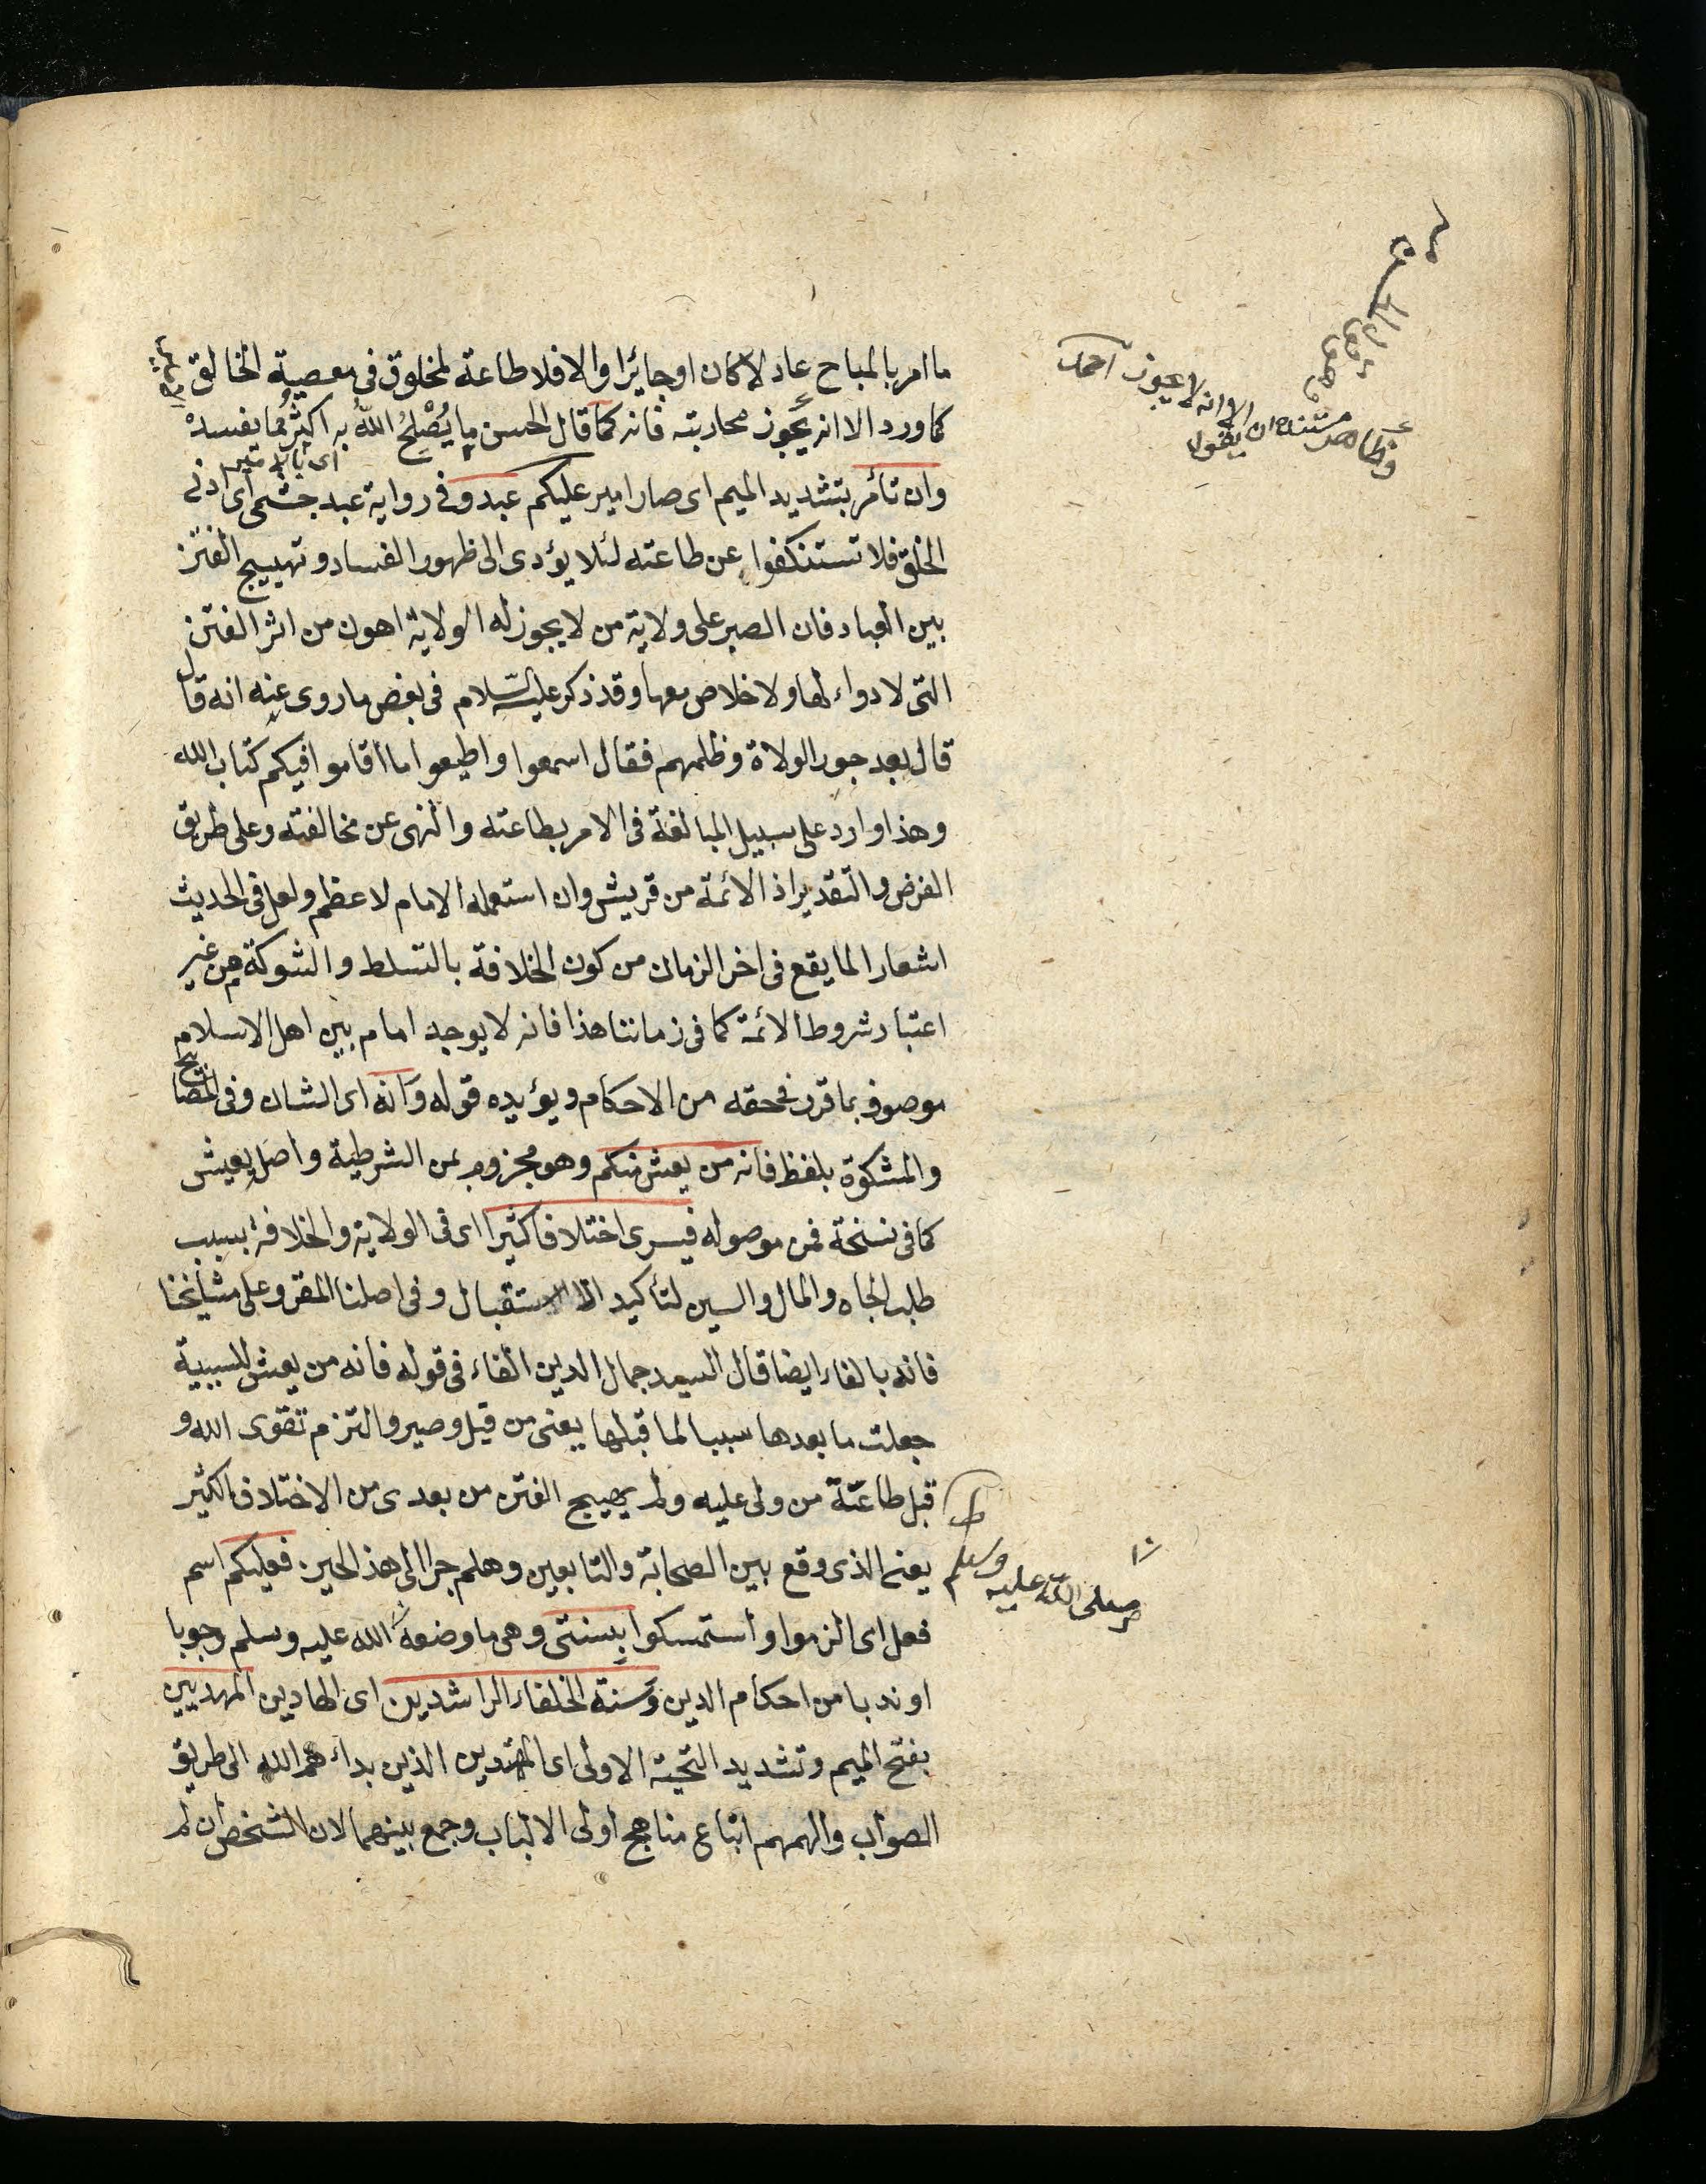 ما امر بالمباح عادلا كان او جائرا والا فلا طاعة لمخلوق فى معصية الخالق
كما ورد الا انه يجوز محاربته فانه كما قال الحسن ما يُصْلِحُ اللهُ به اكثرُ مما يفسدُ
اى بالا
وان تأمّر بتشديد الميم اى صار امير عليكم عبد وفى رواية عبد حبشى اى ادنى
الخلق فلا تستنكفوا عن طاعته لئلا يؤدى الى ظهور الفساد وتهييج الفتن
بين العباد فان الصبر على ولاية من لا يجوز له الولاية اهون من اثر الفتن
التى لا دواء لها ولا خلاص معها وقد ذكر عليه السّلام فى بعض ما روى عنه انه قال
قال بعد جور الولاة وظلمهم فقال اسمعوا واطيعوا ما اقاموا فيكم كتاب الله
وهذا وارد على سبيل المبالغة فى الامر بطاعته والنهى عن مخالفته وعلى طريق
الفرض والتقدير اذ الائمة من قريش وان استعمله الامام لاعظم ولعل فى الحديث
اشعارا لما يقع فى اخر الزمان من كون الخلافة بالتسلط والشوكة من غير
اعتبار شروط الائمة كما فى زماننا هذا فانه لا يوجد امام بين اهل الاسلام
موصوف بما قرر فى حقه من الاحكام ويؤيده قوله وانه اى الشان وفى المصابيح
والمشكوة بلفظ فانه من يعش منكم وهو مجزوم بمن الشرطية واصله يعيش
كما فى نسخة فمن موصوله فيسرى اختلافا كثيرا اى فى الولاية والخلافة بسبب
طلب الجاه والمال والسين لتأكيد الاستقبال وفى اصلنا المقرو على مشائخنا
فانه بالفاء ايضا قال السيد جمال الدين الفاء فى قوله فانه من يعش للسببية
جعلت ما بعدها سببا لما قبلها يعنى من قبل وصيرو التزم تقوى الله و
قبل طاعة من ولى عليه ولم يهيج الفتن من بعدى من الاختلاف الكثير
يعنى الذى وقع بين الصحابة والتابعين وهلم جرا الى هذ الحين فعليكم اسم
فعل اى الزموا واستمسكوا بسنتى وهى ما وضعه الله عليه وسلم وجوبا
او ندبا من احكام الدين وسنة الخلفاء الراشدين اى الهادين المهديين
بفتح الميم وتشديد التحتية الاولى اى المهتدين الذين بداء هم الله الى طريق
الصواب والهمهم اتباع مناهج اولى الالباب وجمع بينهما لان الشخص ان لم
وظاهر ان يقول
الا انه لا يجوز
صلى الله عليه وسلم